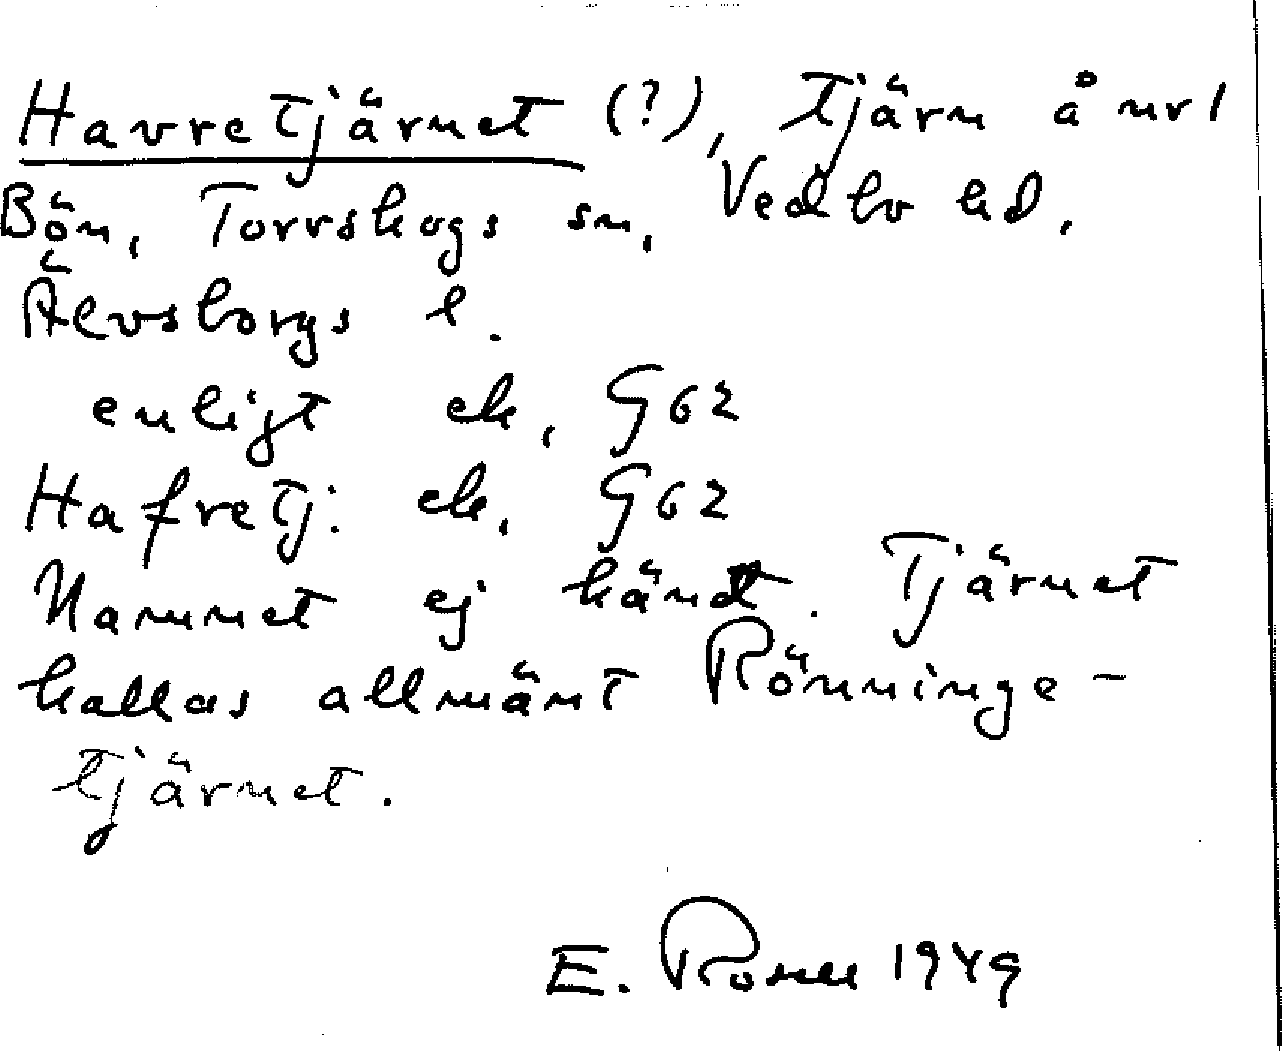 Havretjärnet (?), tjärn å nr 1
Bön, Torrskogs sn, Vedbo hd,
Älvsborgs l.
enligt ek, G62
Hafretj: ek, G62
Namnet ej känt. Tjärnet
kallas allmänt Rönninge-
tjärnet.
E. Rosell 1949